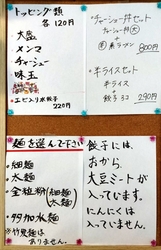 トッピング類
各120円
大盛
メンマ
チャーシュー
味玉
エビ入り水餃子
220円
チャーシュー丼セット
チャーシュー丼(大)
＋
半ラーメン
800円
半ライスセット
半ライス
＋
餃子3コ
290円
麺を選んで下さい
・細麺
・太麺
・全粒粉(細麺
太麺)
・多加水麺
※竹炭麺は
ありません。
餃子には、
おから、
大豆ミートが
入っています。
にんにくは
入っていません。